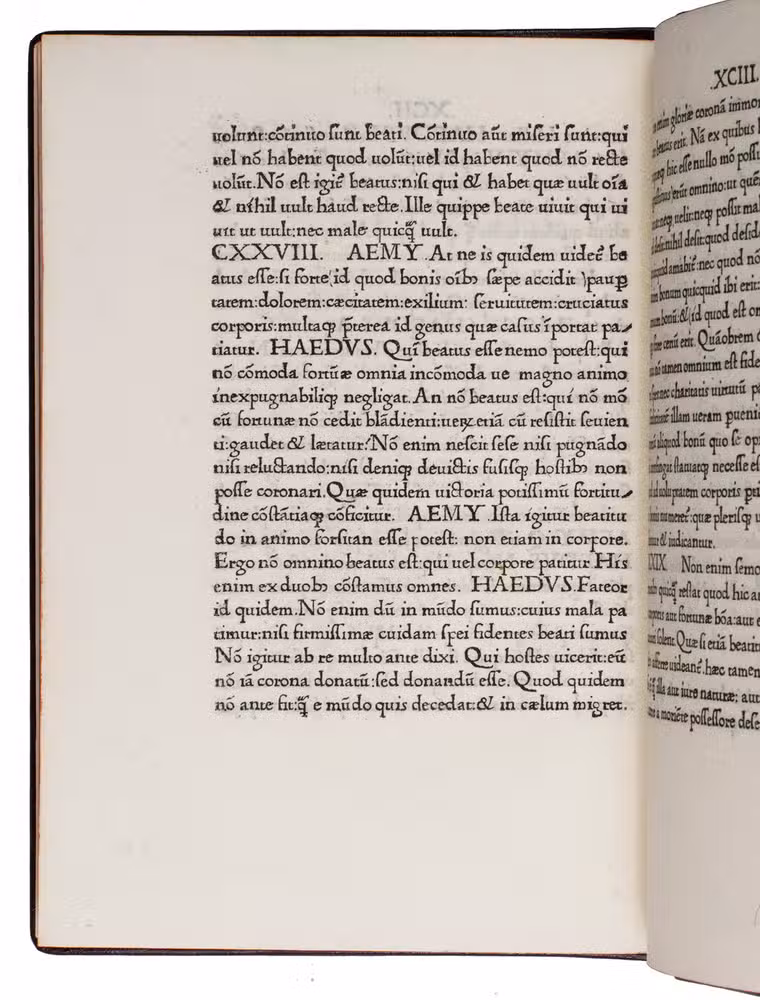 uolunt:cõtinuo sunt beati. Cõtinuo aũt miseri sunt:qui
uel nõ habent quod uolũt:uel id habent quod nõ recte
uolũt.Nõ est igit̃ beatus:nisi qui & habet quæ uult oĩa
& nihil uult haud recte.Ille quippe beate uiuit qui ui
uit ut uult:nec male quicq̃ uult.
CXXVIII. AEMY.At ne is quidem uidet̃ be
atus esse:si forte,id quod bonis oĩbꝫ sæpe accidit )pauꝑ
tatem:dolorem:cæcitatem:exilium: seruitutem:cruciatus
corporis:multaqꝫ p̃terea id genus quæ casus ĩportat pa⸗
tiatur. HAEDVS. Quĩ beatus esse nemo potest:qui
nõ cõmoda fortũæ omnia incõmoda ue magno animo
inexpugnabiliqꝫ negligat.An nõ beatus est:qui nõ mõ
cũ fortunæ nõ cedit blãdienti:ueꝝ etiã cũ resistit seuien
ti:gaudet & lætatur?Nõ enim nescit sese nisi pugnãdo
nisi reluctando:nisi deniqꝫ deuictis fusisqꝫ hostibꝫ non
posse coronari.Quæ quidem uictoria potissimũ fortitu⸗
dine cõstãtiaqꝫ cõficitur. AEMY.Ista igitur beatitu
do in animo forsitan esse potest: non etiam in corpore.
Ergo nõ omnino beatus est:qui uel corpore patitur.His
enim ex duobꝫ cõstamus omnes. HAEDVS.Fateor
id quidem.Nõ enim dũ in mũdo sumus:cuius mala pa
timur:nisi firmissimæ cuidam spei fidentes beati sumus
Nõ igitur ab re multo ante dixi. Qui hostes uicerit:eũ
nõ iã corona donatũ:sed donandũ esse. Quod quidem
nõ ante fit:q̃ e mũdo quis decedat:& in cælum migret.
.XCIII.
enim gloriæ coronã immor
beatus erit. Nã ex quibus
hic esse nullo mõ possu
erũt omnino:ut quæ
uelit:neqꝫ possit mal
desit:nihil desit:quod desid
amabit̃:nec quod nõ
bonum quicquid ibi erit:
bonũ:&(id quod est or
certũ erit. Quãobrem
tamen omnium est fide
nec charitatis uirtutũ
illam ueram pueni
aliquod bonũ quo se op
necesse es
corporis pri
meret̃:quæ plerisqꝫ u
& iudicantur.
XXIX Non enim semo
quicq̃ restat quod hic
aut fortunæ bõa:aut
solent.Quæ si etiã beatit
uideant̃.hæc tamen
illa aut iure naturæ; aut
a moriẽte possessore dese